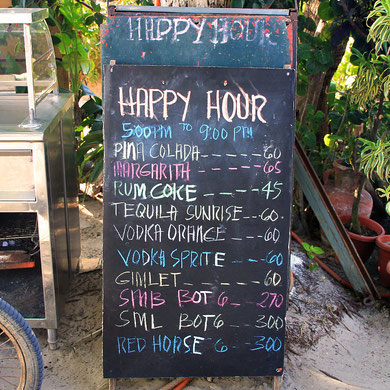 HAPPY HOUR
HAPPY HOUR
5:00PM TO 9:00 PM
PINA COLADA----60
MARGARITH----65
RUM COKE----45
TEQUILA SUNRISE--60
VODKA ORANGE---60
VODKA SPRITE---60
GIMLET----60
SMB BOT 6--270
SML BOT6--300
RED HORSE 6--300